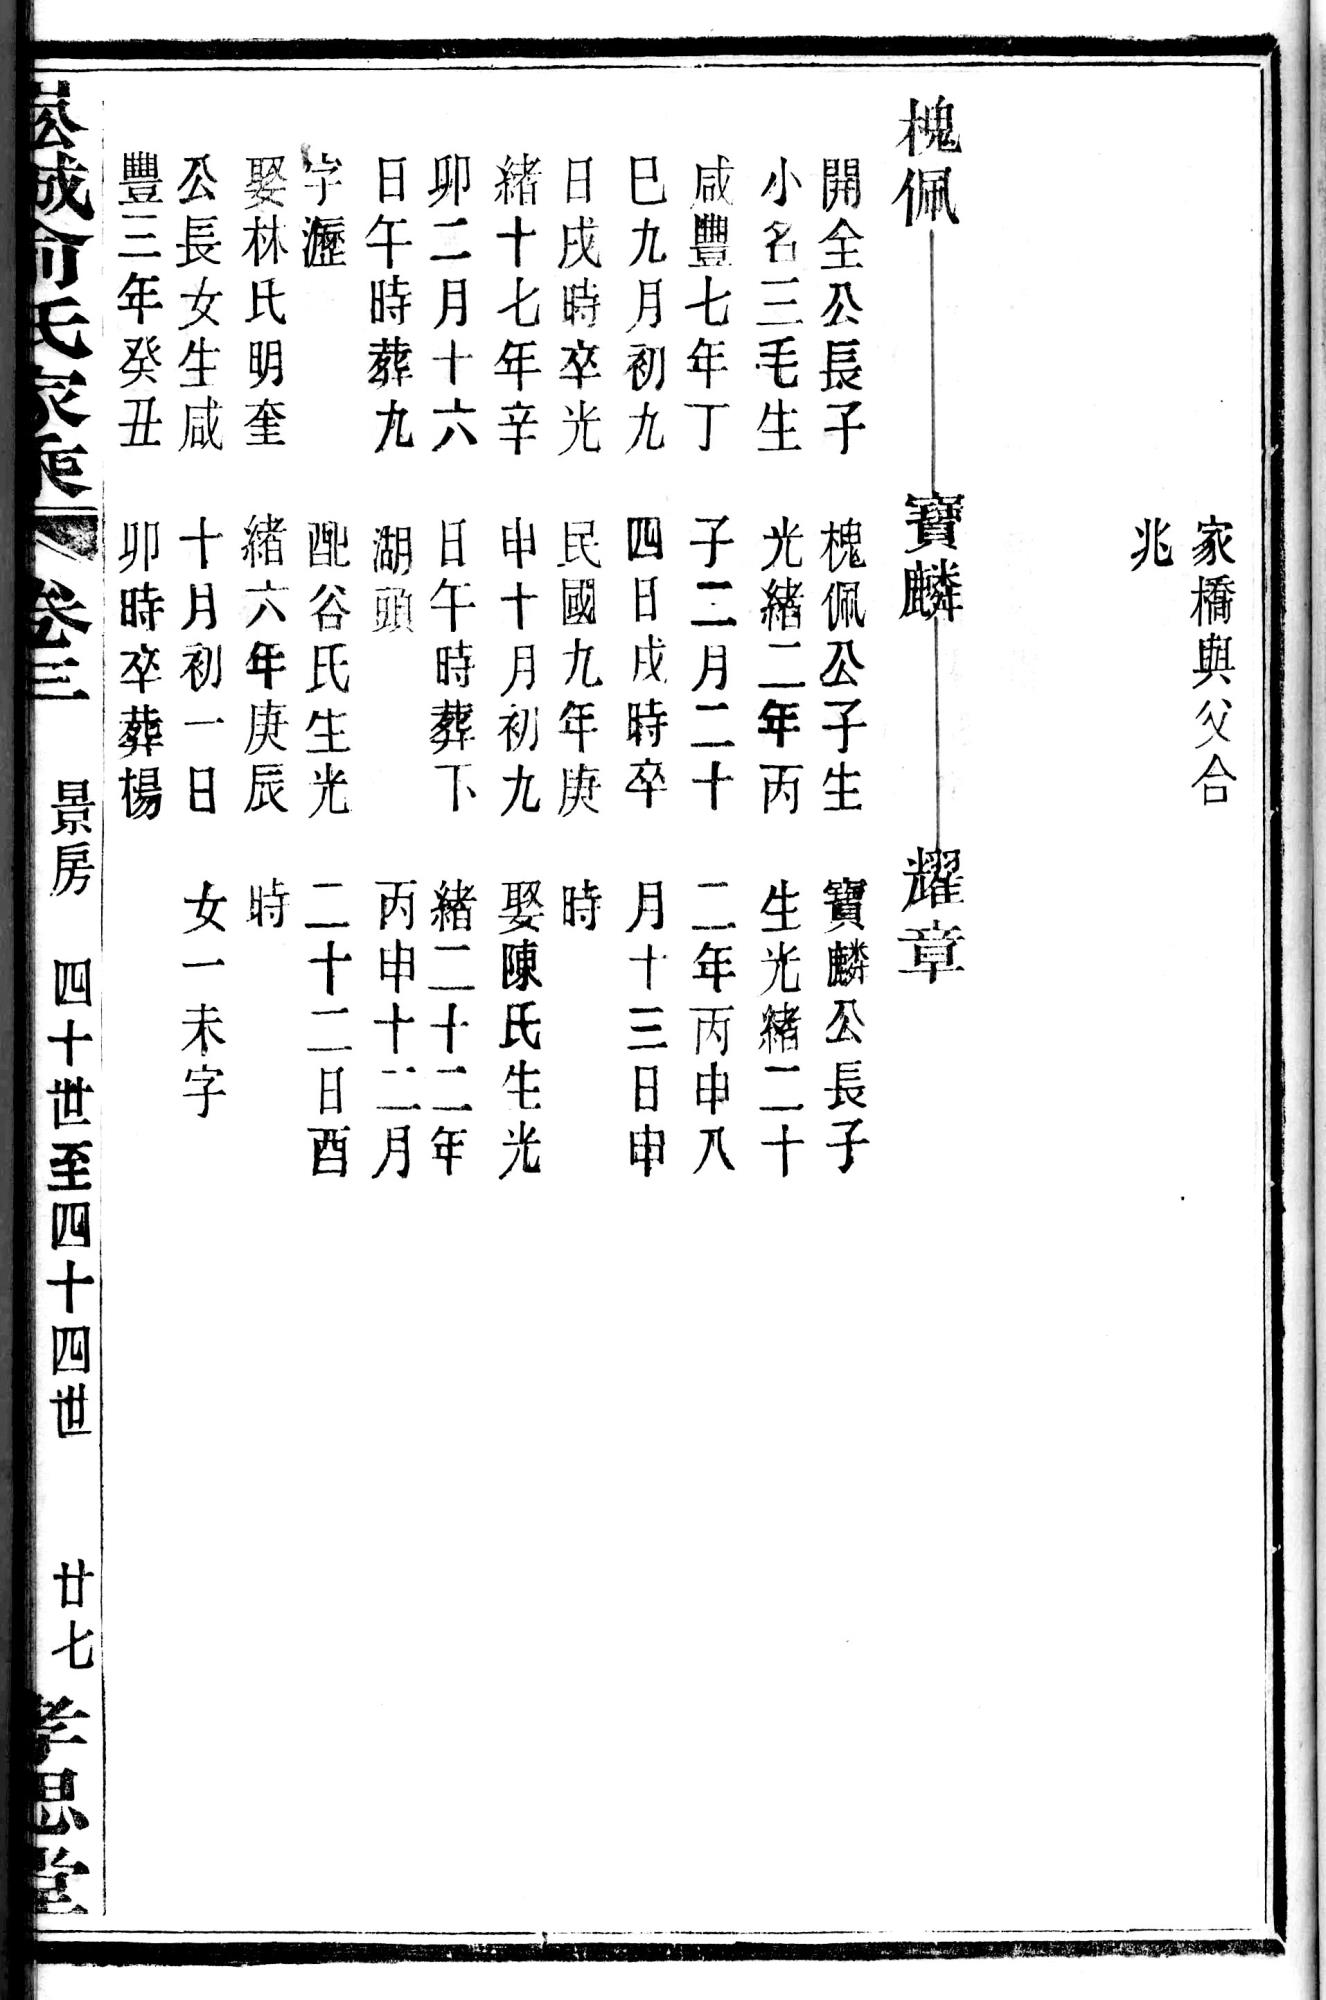 家橋與父合
兆
槐佩
寶麟
耀章
開全公長子
小名三毛生
咸豐七年丁
巳九月初九
日戌時卒光
緒十七年辛
卯二月十六
日午時葬九
字瀝
娶林氏明奎
公長女生咸
豐三年癸丑
槐佩公子生
光緒二年丙
子二月二十
四日戌時卒
民國九年庚
申十月初九
日午時葬下
湖頭
配谷氏生光
緒六年庚辰
十月初一日
卯時卒葬楊
寶麟公長子
生光緒二十
二年丙申八
月十三日申
時
娶陳氏生光
緒二十二年
丙申十二月
二十二日酉
時
女一未字
崧城俞氏家乘 卷三 景房 四十世至四十四世 廿七 孝思堂